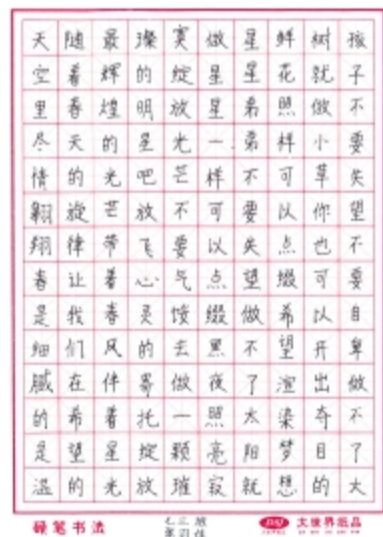 孩子不要失望不要自卑做不了大
树就做小草你也可以开出奇目的
鲜花照样可以点缀希望渲染梦想
星星弟弟不要失望做不了太阳就
做星星一样可以点缀黑夜照亮寂
寞绽放光芒不要气馁去做一颗璀
璨的明星吧放飞心灵的寄托绽放
最辉煌的光芒带着春风伴着星光
随着春天的旋律让我们在希望的
天空里尽情翱翔春是细腻的是温
硬笔书法
DSJ 大世界纸品